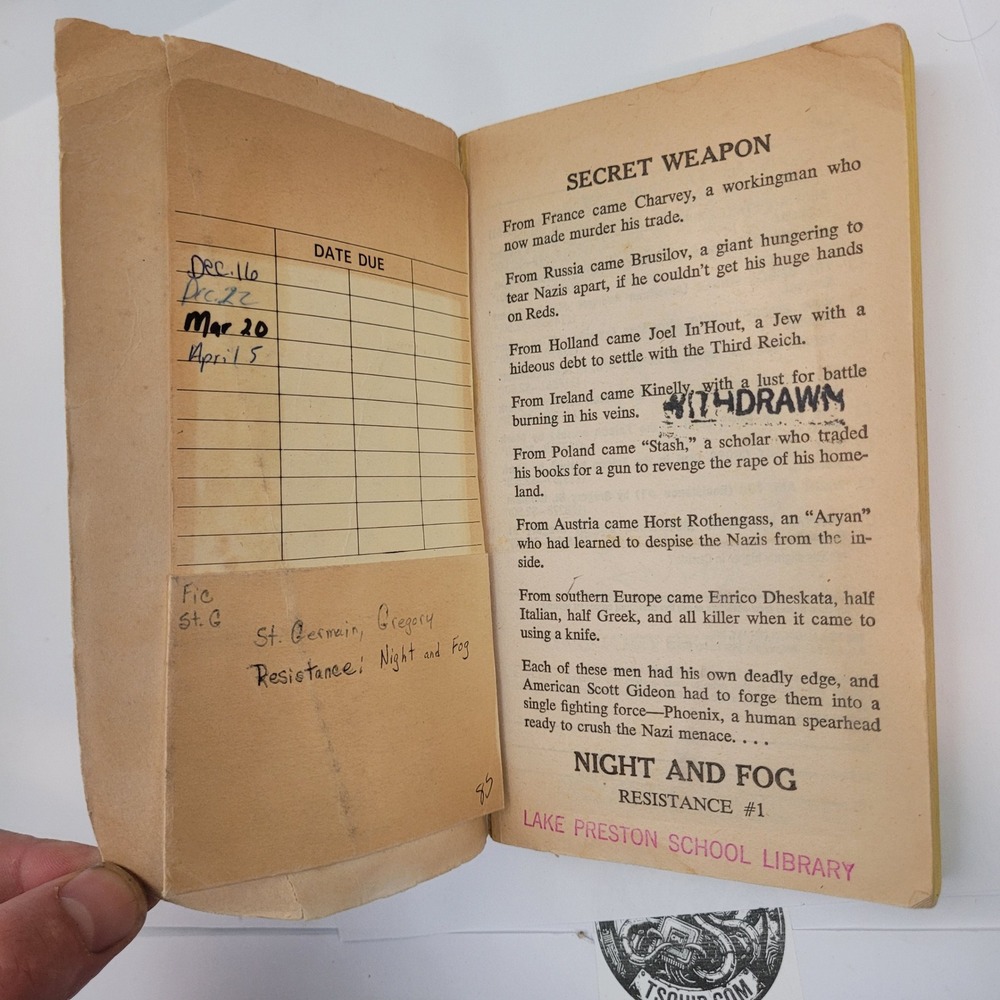 DATE DUE
Dec. 16
Dec. 22
Mar 20
April 5
Fic
St. G
St. Germain, Gregory
Resistance: Night and Fog
85
SECRET WEAPON
From France came Charvey, a workingman who
now made murder his trade.
From Russia came Brusilov, a giant hungering to
tear Nazis apart, if he couldn't get his huge hands
on Reds.
From Holland came Joel In'Hout, a Jew with a
hideous debt to settle with the Third Reich.
From Ireland came Kinelly, with a lust for battle
burning in his veins.
WITHDRAWN
From Poland came "Stash," a scholar who traded
his books for a gun to revenge the rape of his home-
land.
From Austria came Horst Rothengass, an "Aryan"
who had learned to despise the Nazis from the in-
side.
From southern Europe came Enrico Dheskata, half
Italian, half Greek, and all killer when it came to
using a knife.
Each of these men had his own deadly edge, and
American Scott Gideon had to forge them into a
single fighting force—Phoenix, a human spearhead
ready to crush the Nazi menace. . . .
NIGHT AND FOG
RESISTANCE #1
LAKE PRESTON SCHOOL LIBRARY
TSQUID.COM